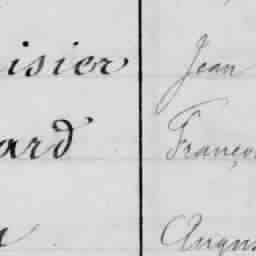 isier Jean
ard Franço
Augus